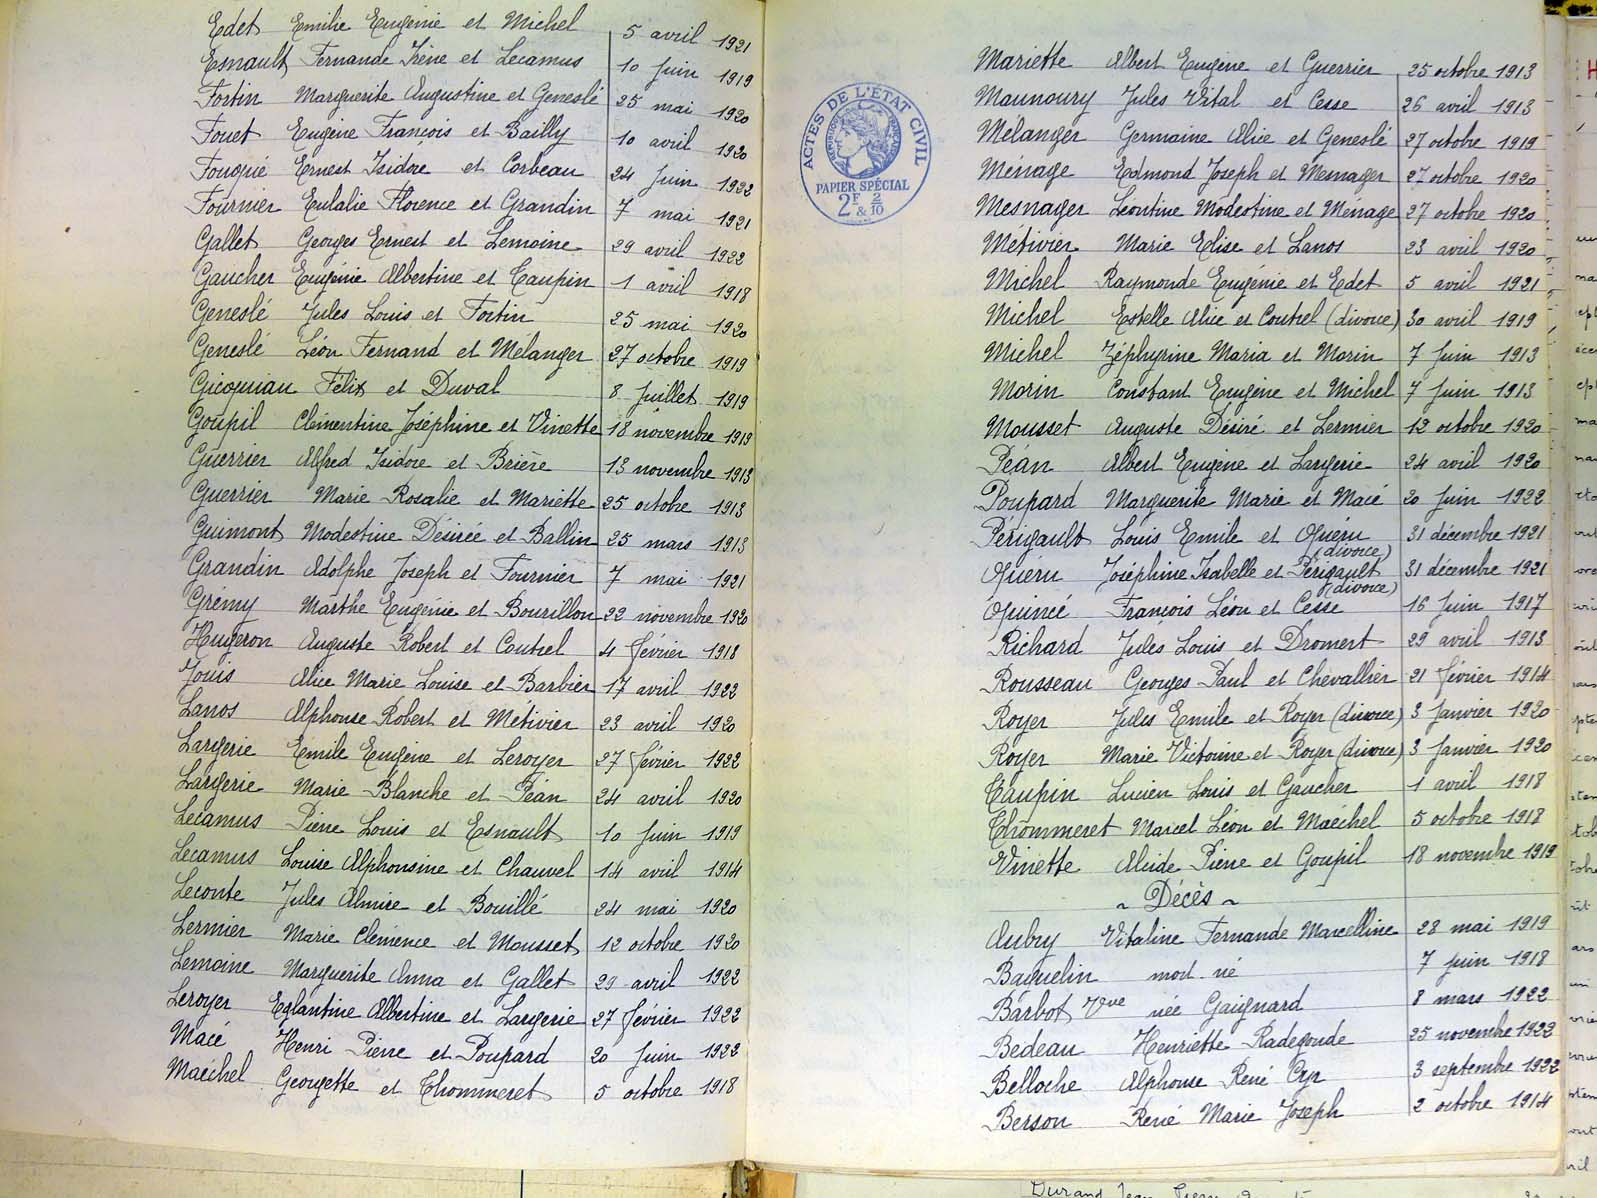 Edet Emilie Eugénie et Michel 5 avril 1921
Esnault Fernande Irène et Lecamus 10 Juin 1919
Fortin Marguerite Augustine et Geneslé 25 mai 1920
Fouet Eugène François et Bailly 10 avril 1920
Fouqué Ernest Isidore et Corbeau 24 Juin 1922
Fournier Eulalie Florence et Grandin 7 mai 1921
Gallet Georges Ernest et Lemoine 29 avril 1922
Gaucher Eugénie Albertine et Taupin 1 avril 1918
Geneslé Jules Louis et Fortin 25 mai 1920
Geneslé Léon Fernand et Mélanger 27 octobre 1919
Gicquiau Félix et Duval 8 Juillet 1919
Goupil Clémentine Joséphine et Vinette 18 novembre 1919
Guerrier Alfred Isidore et Brière 13 novembre 1913
Guerrier Marie Rosalie et Mariette 25 octobre 1913
Guimont Modestine Désirée et Ballin 25 mars 1913
Grandin Adolphe Joseph et Fournier 7 mai 1921
Gremy Marthe Eugénie et Bourillon 22 novembre 1920
Hugeron Auguste Robert et Coutrel 4 février 1918
Jouis Alice Marie Louise et Barbier 17 avril 1922
Lanos Alphonse Robert et Métivier 23 avril 1920
Largerie Emile Eugène et Leroyer 27 février 1922
Largerie Marie Blanche et Péan 24 avril 1920
Lecamus Pierre Louis et Esnault 10 Juin 1919
Lecamus Louise Alphonsine et Chauvel 14 avril 1914
Leconte Jules Almire et Bouillé 24 mai 1920
Lermier Marie Clémence et Mousset 12 octobre 1920
Lemoine Marguerite Anna et Gallet 29 avril 1922
Leroyer Eglantine Albertine et Largerie 27 février 1922
Macé Henri Pierre et Poupard 20 Juin 1922
Maéchel Georgette et Thommeret 5 octobre 1918
ACTES DE L'ÉTAT CIVIL
RÉPUBLIQUE FRANÇAISE
PAPIER SPÉCIAL
2F & 2/10
Mariette Albert Eugène et Guerrier 25 octobre 1913
Maunoury Jules Vital et Cesse 26 avril 1913
Mélanger Germaine Alice et Geneslé 27 octobre 1919
Ménage Edmond Joseph et Mesnager 27 octobre 1920
Mesnager Léontine Modestine et Ménage 27 octobre 1920
Métivier Marie Elise et Lanos 23 avril 1920
Michel Raymonde Eugénie et Edet 5 avril 1921
Michel Estelle Alice et Coutrel (divorce) 30 avril 1919
Michel Zéphyrine Maria et Morin 7 Juin 1913
Morin Constant Eugène et Michel 7 Juin 1913
Mousset Auguste Désiré et Lermier 12 octobre 1920
Péan Albert Eugène et Largerie 24 avril 1920
Poupard Marguerite Marie et Macé 20 Juin 1922
Périgault Louis Emile et Quéru (divorce) 31 décembre 1921
Queru Joséphine Isabelle et Périgault (divorce) 31 décembre 1921
Quincé François Léon et Cesse 16 Juin 1917
Richard Jules Louis et Dromert 29 avril 1913
Rousseau Georges Paul et Chevallier 21 février 1914
Royer Jules Emile et Royer (divorce) 3 Janvier 1920
Royer Marie Victorine et Royer (divorce) 3 Janvier 1920
Taupin Lucien Louis et Gaucher 1 avril 1918
Thommeret Marcel Léon et Maéchel 5 octobre 1918
Vinette Alcide Pierre et Goupil 18 novembre 1919
~ Décès ~
Aubry Vitaline Fernande Marcelline 28 mai 1919
Baguelin mort né 7 Juin 1918
Barbot Vve née Gaignard 8 mars 1922
Bedeau Henriette Radegonde 25 novembre 1922
Belloche Alphonse René Cyr 3 septembre 1922
Berson René Marie Joseph 2 octobre 1914